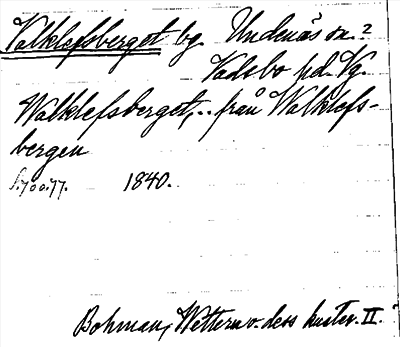 Valklefsberget bg. Undenäs sn.?
Vadsbo hd. Vg.
Walklefsberget,.. från Walklefs-
bergen
s. 700.77. 1840.
Bohman, Wettern o. dess kuster. II.